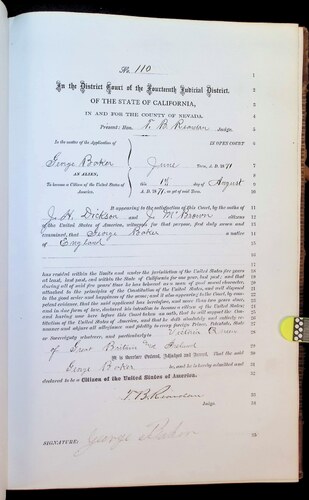 No. 110
In the District Court of the Fourteenth Judicial District,
OF THE STATE OF CALIFORNIA,
IN AND FOR THE COUNTY OF NEVADA.
Present: Hon. T. B. Reardan Judge.
In the matter of the Application of
George Baker
AN ALIEN,
To become a Citizen of the United States of
America.
IN OPEN COURT
June Term, A. D. 1871
this 1st day of August
A. D. 1871,
It appearing to the satisfaction of this Court, by the oaths of
J. H. Dickson and J. McBrown citizens
of the United States of America, witnesses for that purpose, first duly sworn and
examined, that George Baker a native
of England
has resided within the limits and under the jurisdiction of the United States five years
at least, last past, and within the State of California for one year, last past; and that
during all of said five years' time he has behaved as a man of good moral character,
attached to the principles of the Constitution of the United States, and well disposed
to the good order and happiness of the same; and it also appearing to the Court, by com-
petent evidence, that the said applicant has heretofore, and more than two years since,
and in due form of law, declared his intention to become a citizen of the United States;
and having now here before this Court taken an oath, that he will support the Con-
stitution of the United States of America, and that he doth absolutely and entirely re-
nounce and abjure all allegiance and fidelity to every foreign Prince, Potentate, State
or Sovereignty whatever, and particularly to Victoria Queen
of Great Britain and Ireland
It is therefore Ordered, Adjudged and Decreed, That the said
George Baker be, and he is hereby admitted and
declared to be a Citizen of the United States of America.
T. B. Reardan
Judge.
SIGNATURE: George Baker
1
2
3
4
5
6
7
8
9
10
11
12
13
14
15
16
17
18
19
20
21
22
23
24
25
26
27
28
29
30
31
32
33